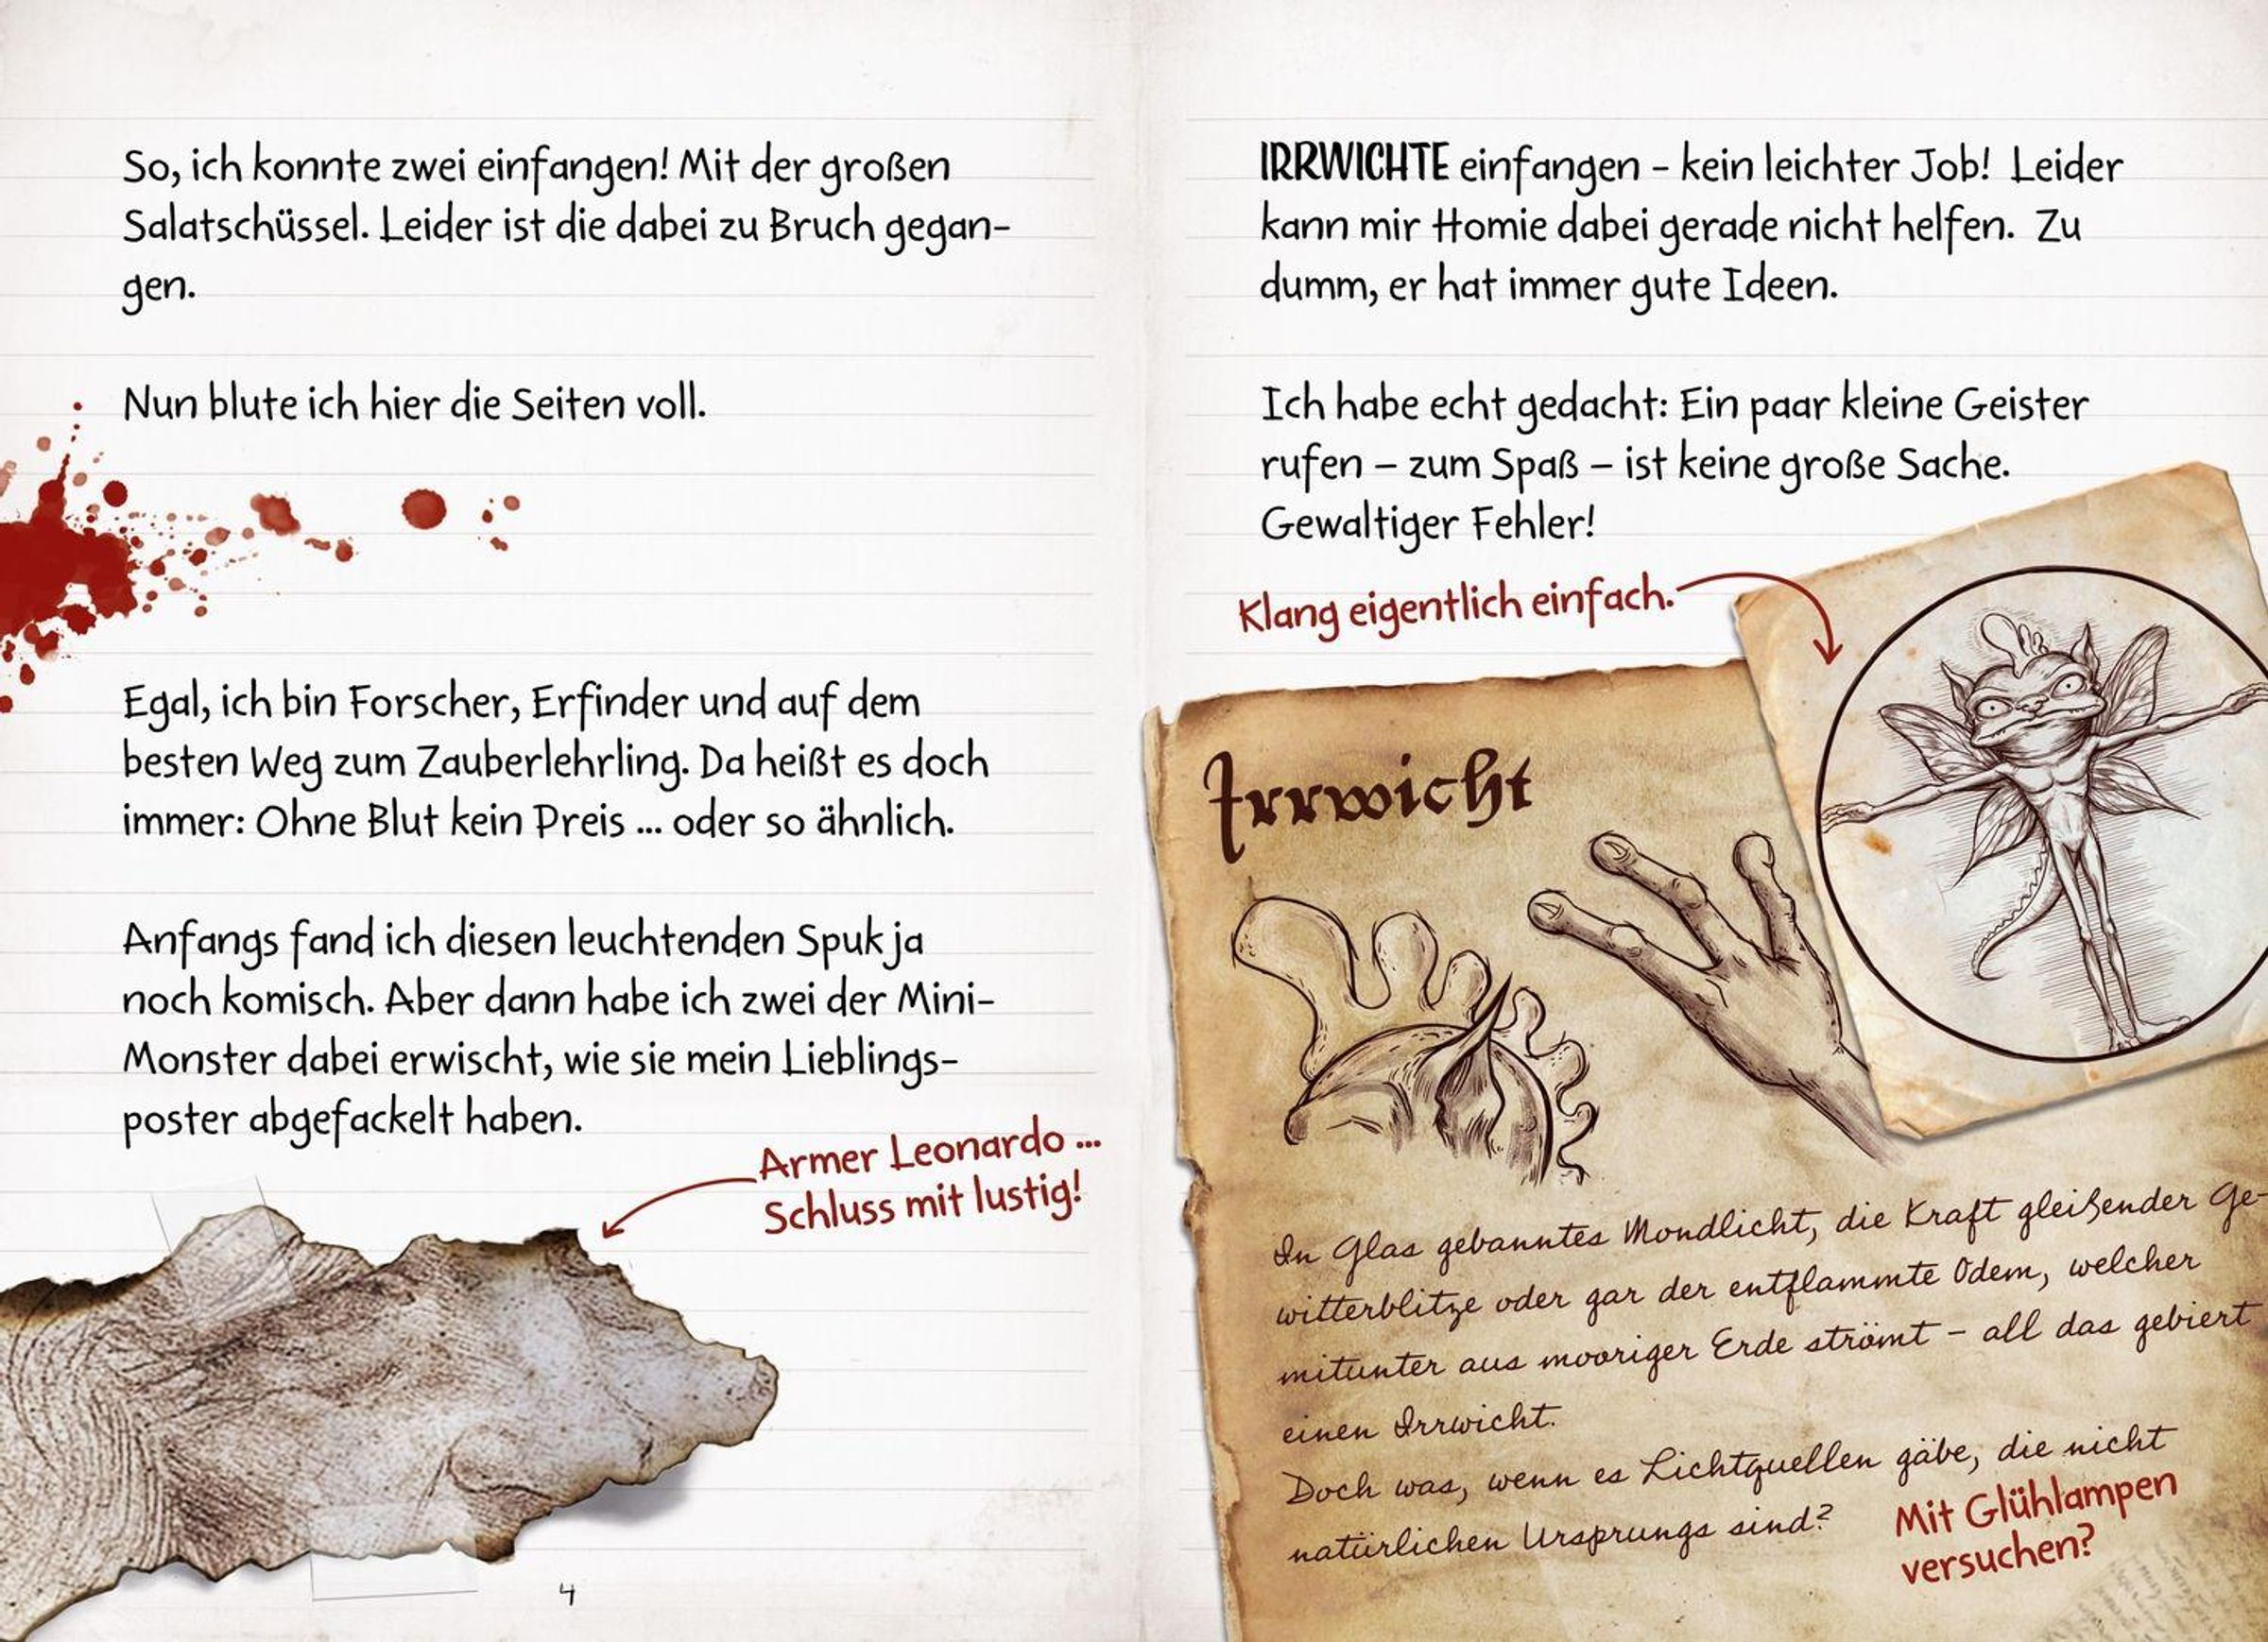 So, ich konnte zwei einfangen! Mit der großen
Salatschüssel. Leider ist die dabei zu Bruch gegan-
gen.
Nun blute ich hier die Seiten voll.
Egal, ich bin Forscher, Erfinder und auf dem
besten Weg zum Zauberlehrling. Da heißt es doch
immer: Ohne Blut kein Preis ... oder so ähnlich.
Anfangs fand ich diesen leuchtenden Spuk ja
noch komisch. Aber dann habe ich zwei der Mini-
Monster dabei erwischt, wie sie mein Lieblings-
poster abgefackelt haben.
Armer Leonardo ...
Schluss mit lustig!
4
IRRWICHTE einfangen – kein leichter Job! Leider
kann mir Homie dabei gerade nicht helfen. Zu
dumm, er hat immer gute Ideen.
Ich habe echt gedacht: Ein paar kleine Geister
rufen – zum Spaß – ist keine große Sache.
Gewaltiger Fehler!
Klang eigentlich einfach.
Irrwicht
In Glas gebanntes Mondlicht, die Kraft gleißender Ge-
witterblitze oder gar der entflammte Odem, welcher
mitunter aus mooriger Erde strömt – all das gebiert
einen Irrwicht.
Doch was, wenn es Lichtquellen gäbe, die nicht
natürlichen Ursprungs sind?
Mit Glühlampen
versuchen?